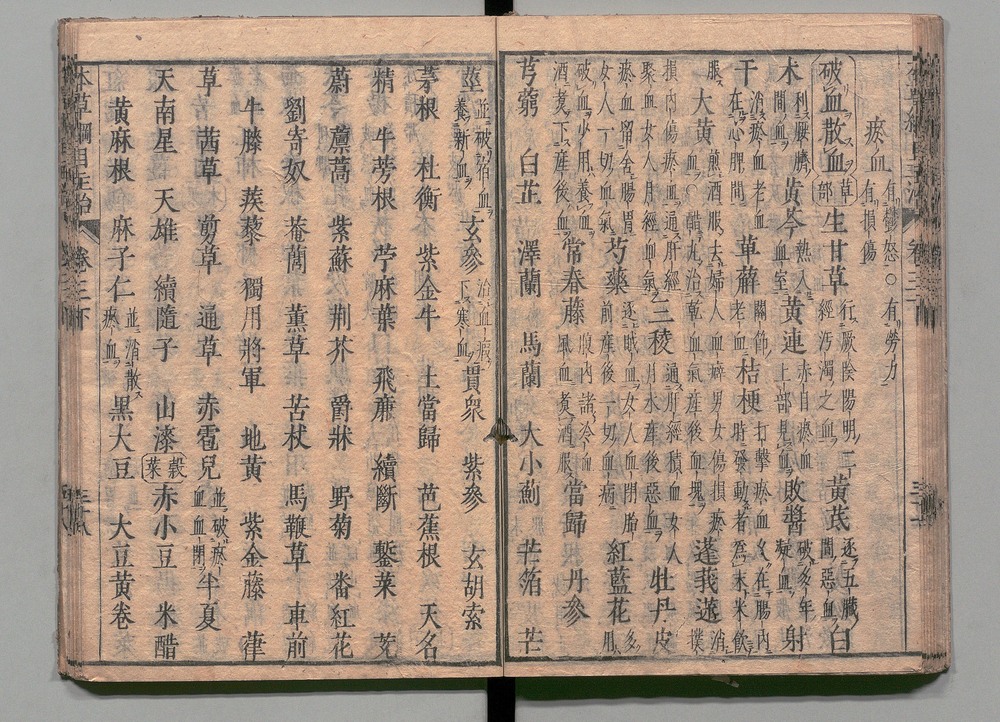 瘀血 有鬱怒○有勞力 有損傷
破血散血 草部 生甘草 行厥陰陽明二經汚濁之血 黃芪 逐五臟間惡血 白
朮 利腰臍間血 黃芩 熱入血室 黃連 赤目瘀血上部見血 敗醬 破多年凝血 射
干 消瘀血老血在心脾間 萆薢 關節老血 桔梗 打擊瘀血久在腸內時發動者爲末米飲
服 大黃 煎酒服去婦人血癖男女傷損瘀血○醋丸治乾血氣産後血塊 蓬莪蒁 消撲
損內傷瘀血通肝經聚血女人月經血氣 三稜 通肝經積血女人月水産後惡血 牡丹皮
瘀血留舍腸胃女人一切血氣 芍藥 逐賊血女人血閉胎前産後一切血病 紅藍花 多用
破血少用養血酒煮下産後血 常春藤 腹內諸冷血風血煮酒服 當歸 丹參
芎藭 白芷 澤蘭 馬蘭 大小薊 芒箔 芒
莖 並破宿血養新血 玄參 治血瘕下寒血 貫衆 紫參 玄胡索
茅根 杜衡 紫金牛 土當歸 芭蕉根 天名
精 牛蒡根 苧麻葉 飛廉 續斷 鏨菜 茺
蔚 薰蒿 紫蘇 荆芥 爵牀 野菊 番紅花
劉寄奴 菴䕡 薰草 苦杖 馬鞭草 車前
牛膝 蒺藜 獨用將軍 地黃 紫金藤 葎
草 茜草 剪草 通草 赤雹兒 並破瘀血血閉 半夏
天南星 天雄 續隨子 山漆 穀菜 赤小豆 米醋
黃麻根 麻子仁 並消散瘀血 黑大豆 大豆黃卷
本草綱目主治 卷三下